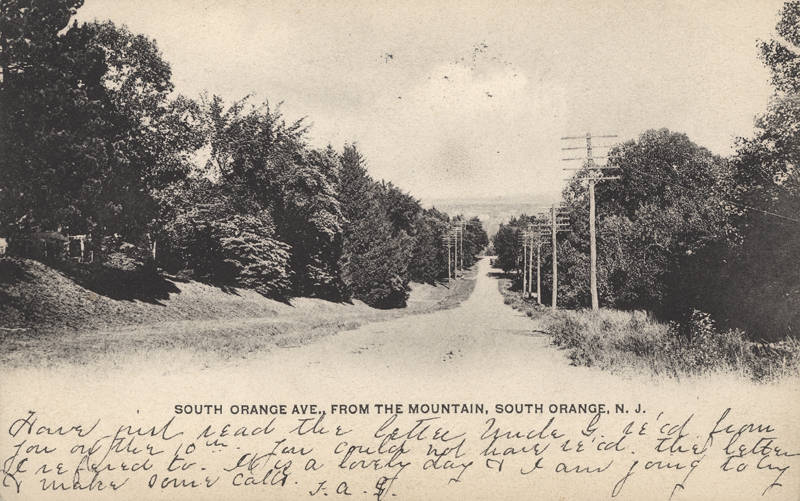 SOUTH ORANGE AVE., FROM THE MOUNTAIN, SOUTH ORANGE, N. J.
Have just read the letter Uncle G. re'c'd from
you on the 10th. You could not have re'c'd. the letter
I refered to. It is a lovely day & I am going to try
& make some calls. F. a. G.